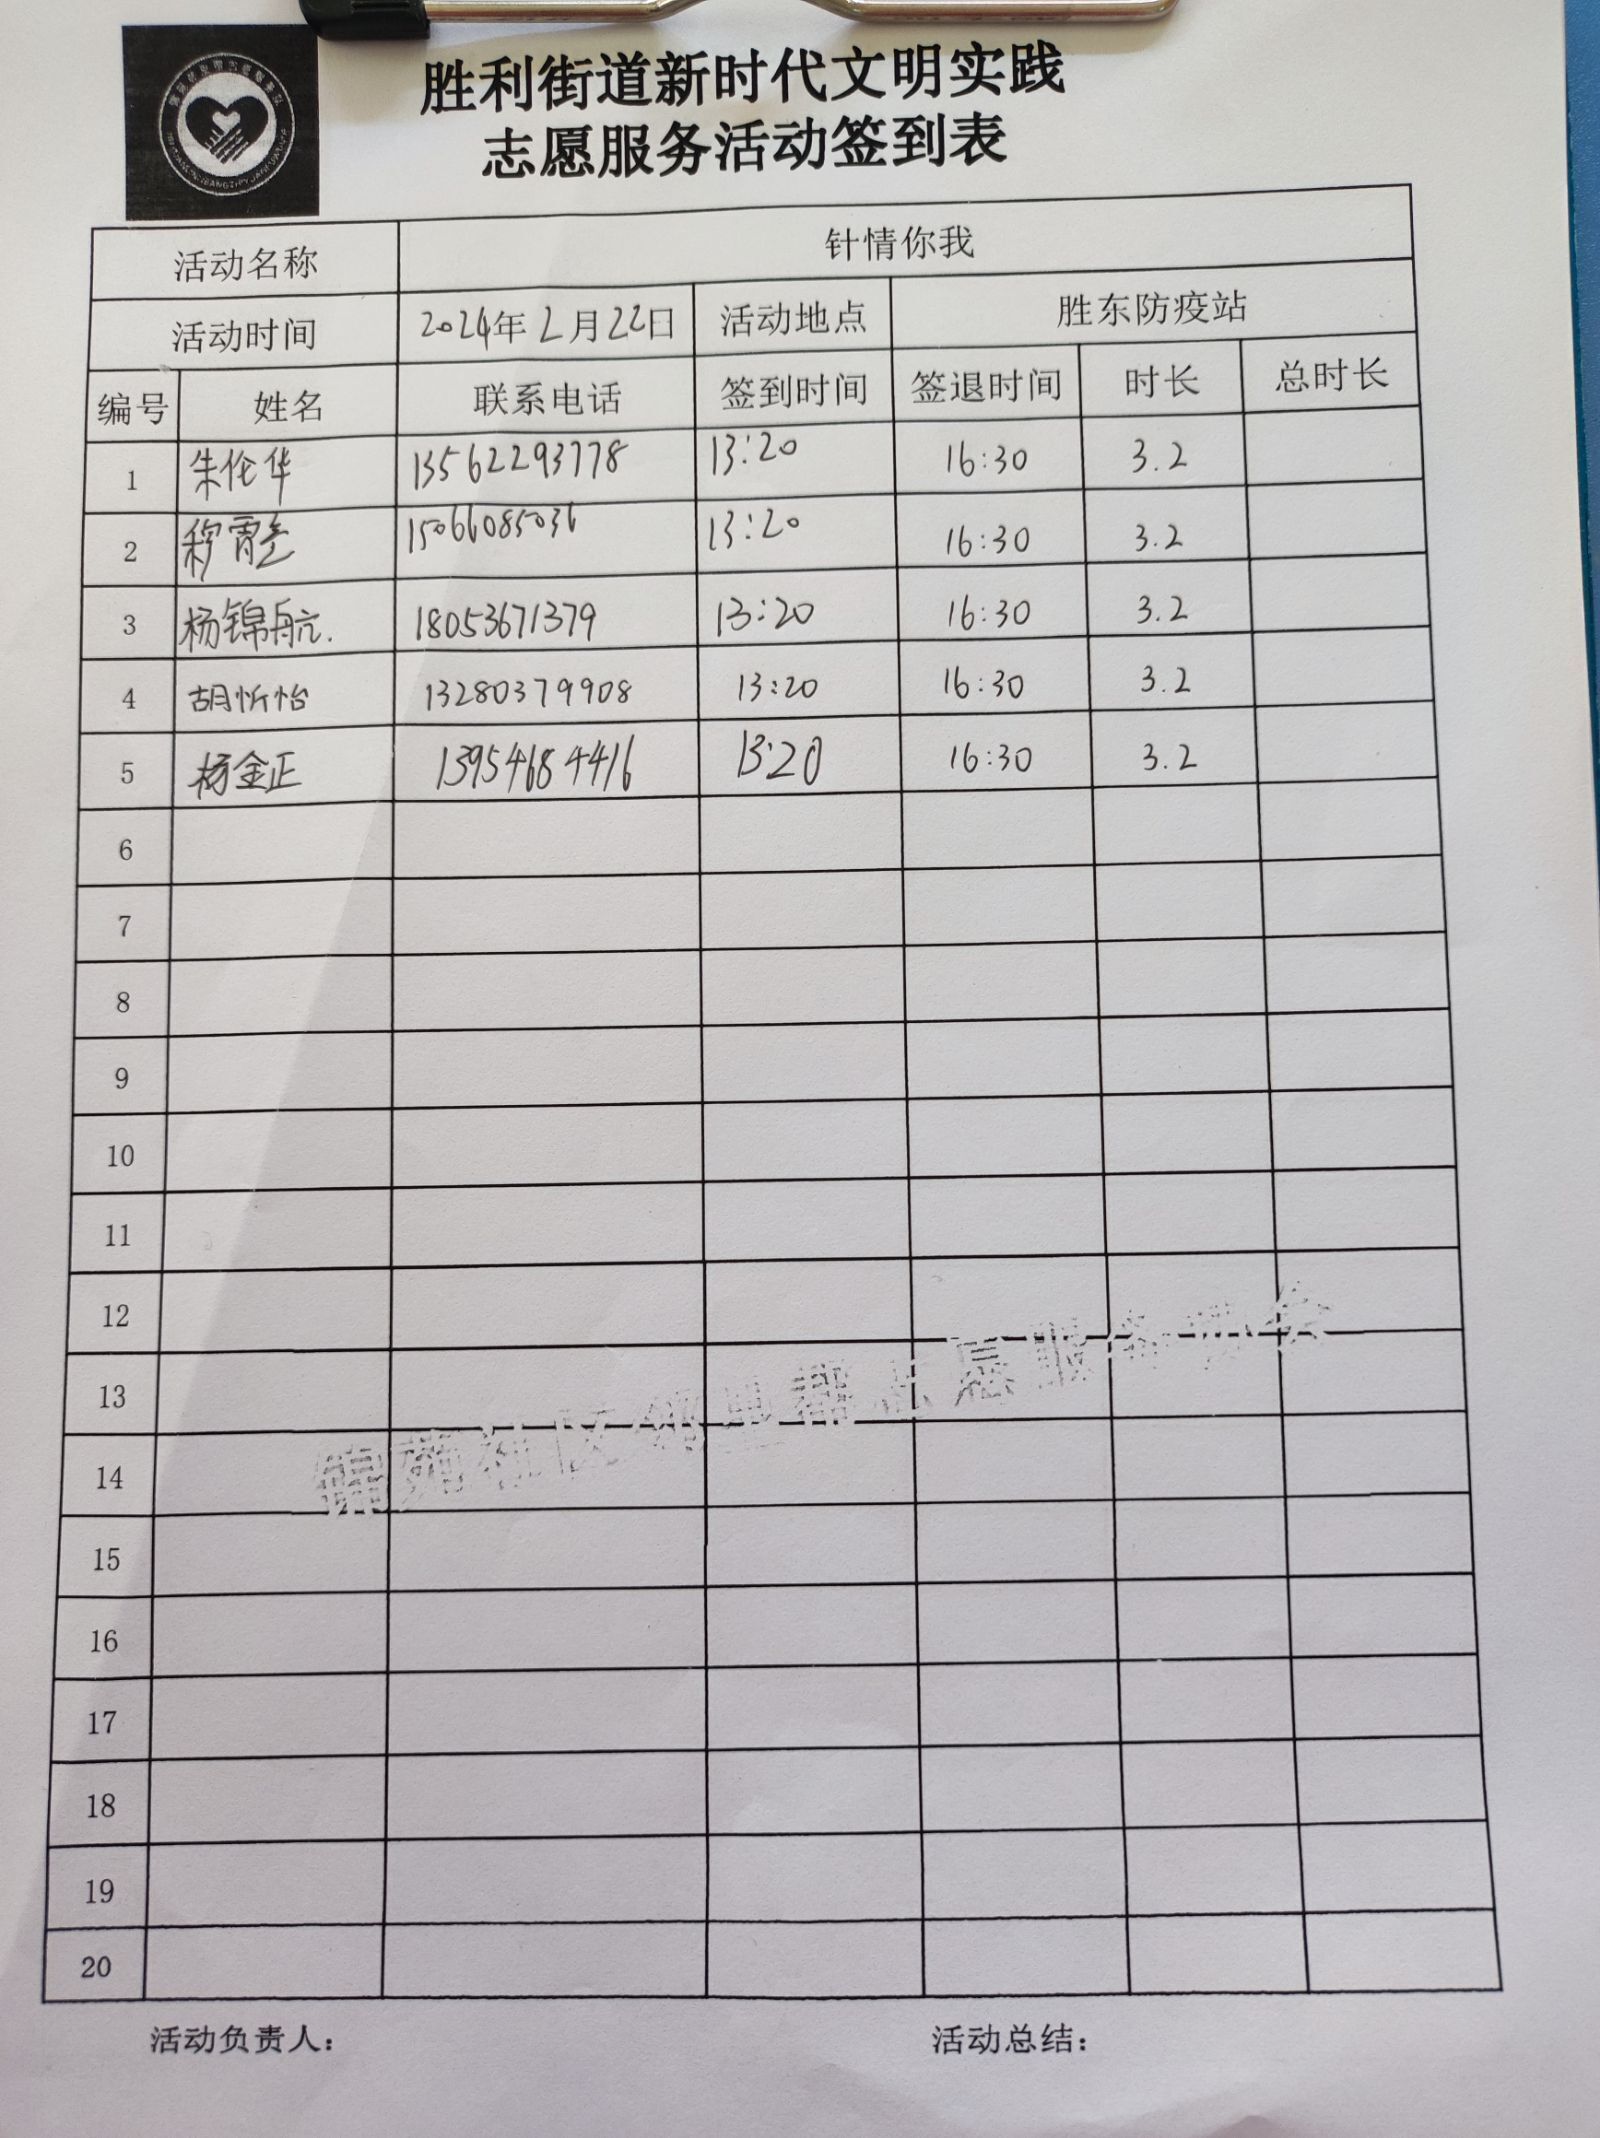 胜利街道新时代文明实践
志愿服务活动签到表
活动名称 针情你我
活动时间 2024年2月22日 活动地点 胜东防疫站
编号 姓名 联系电话 签到时间 签退时间 时长 总时长
1 朱伦华 13562293778 13:20 16:30 3.2
2 穆霄 15066085036 13:20 16:30 3.2
3 杨锦航. 18053671379 13:20 16:30 3.2
4 胡忻怡 13280379908 13:20 16:30 3.2
5 杨金正 13954684416 13:20 16:30 3.2
6
7
8
9
10
11
12
13
14
15
16
17
18
19
20
活动负责人: 活动总结: